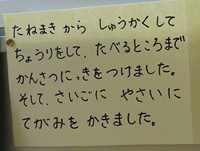 たねまき から しゅうかくして
ちょうりをして、たべるところまで
かんさつにっきをつけました。
そして、さいごに やさいに
てがみを かきました。